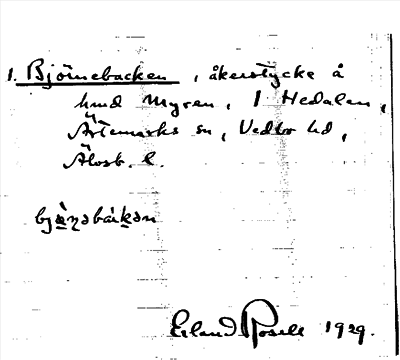 1. Björnebacken, åkerstycke å
hmd Myren, 1 Hedalen,
Ärtemarks sn, Vedbo hd,
Älvsb. l.
Erland Rosell 1929.